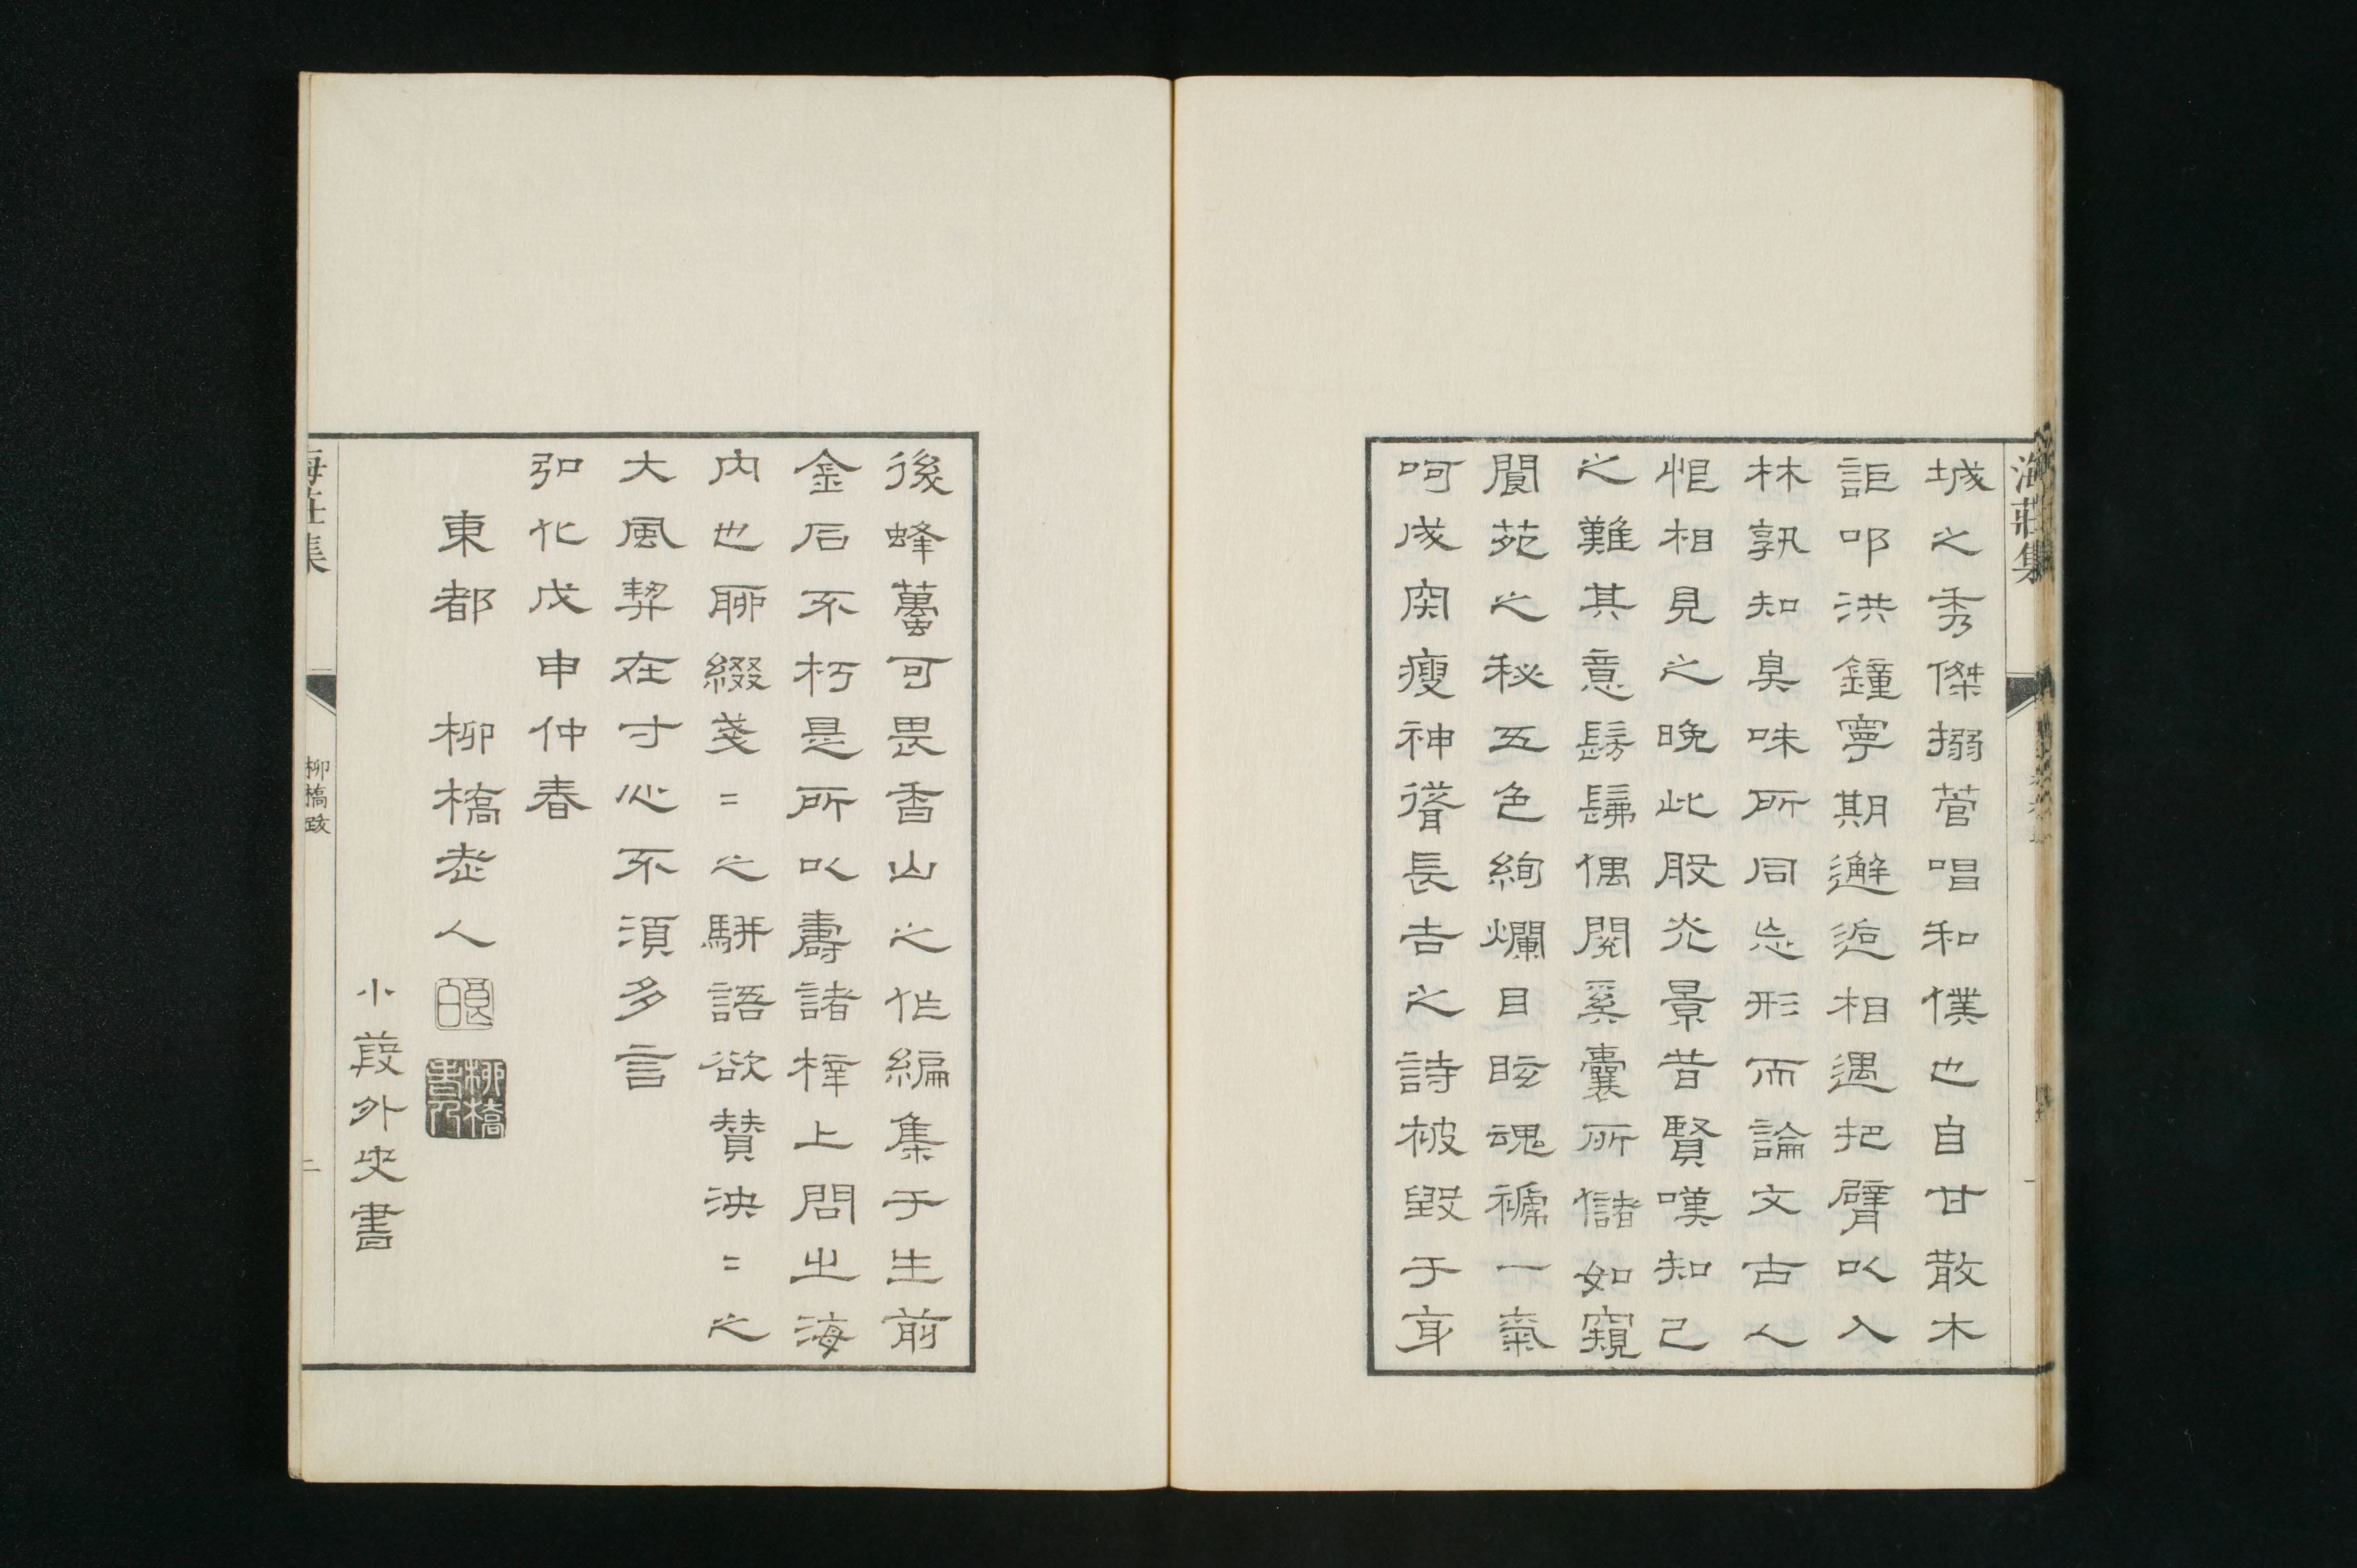 海荘集
城之秀傑搦菅唱和僕也自甘散木
詎叩洪鐘寧期邂逅相遇把臂以入
林孰知臭味所同忘形而論文古人
恨相見之晩此般光景昔賢嘆知己
之難其意髣髴偶閲奚囊所儲如窺
閬苑之秘五色絢爛目眩魂褫一氣
呵成肉瘦神聳長吉之詩被毀于身
後蜂蠆可畏香山之作編集于生前
金石不朽是所以壽諸梓上問之海
内也聊綴戔〻之駢語欲贊泱〻之
大風契在寸心不須多言
弘化戊申仲春
東都 柳橋老人
柳橋
小葭外史書
海荘集
柳橋跋
二